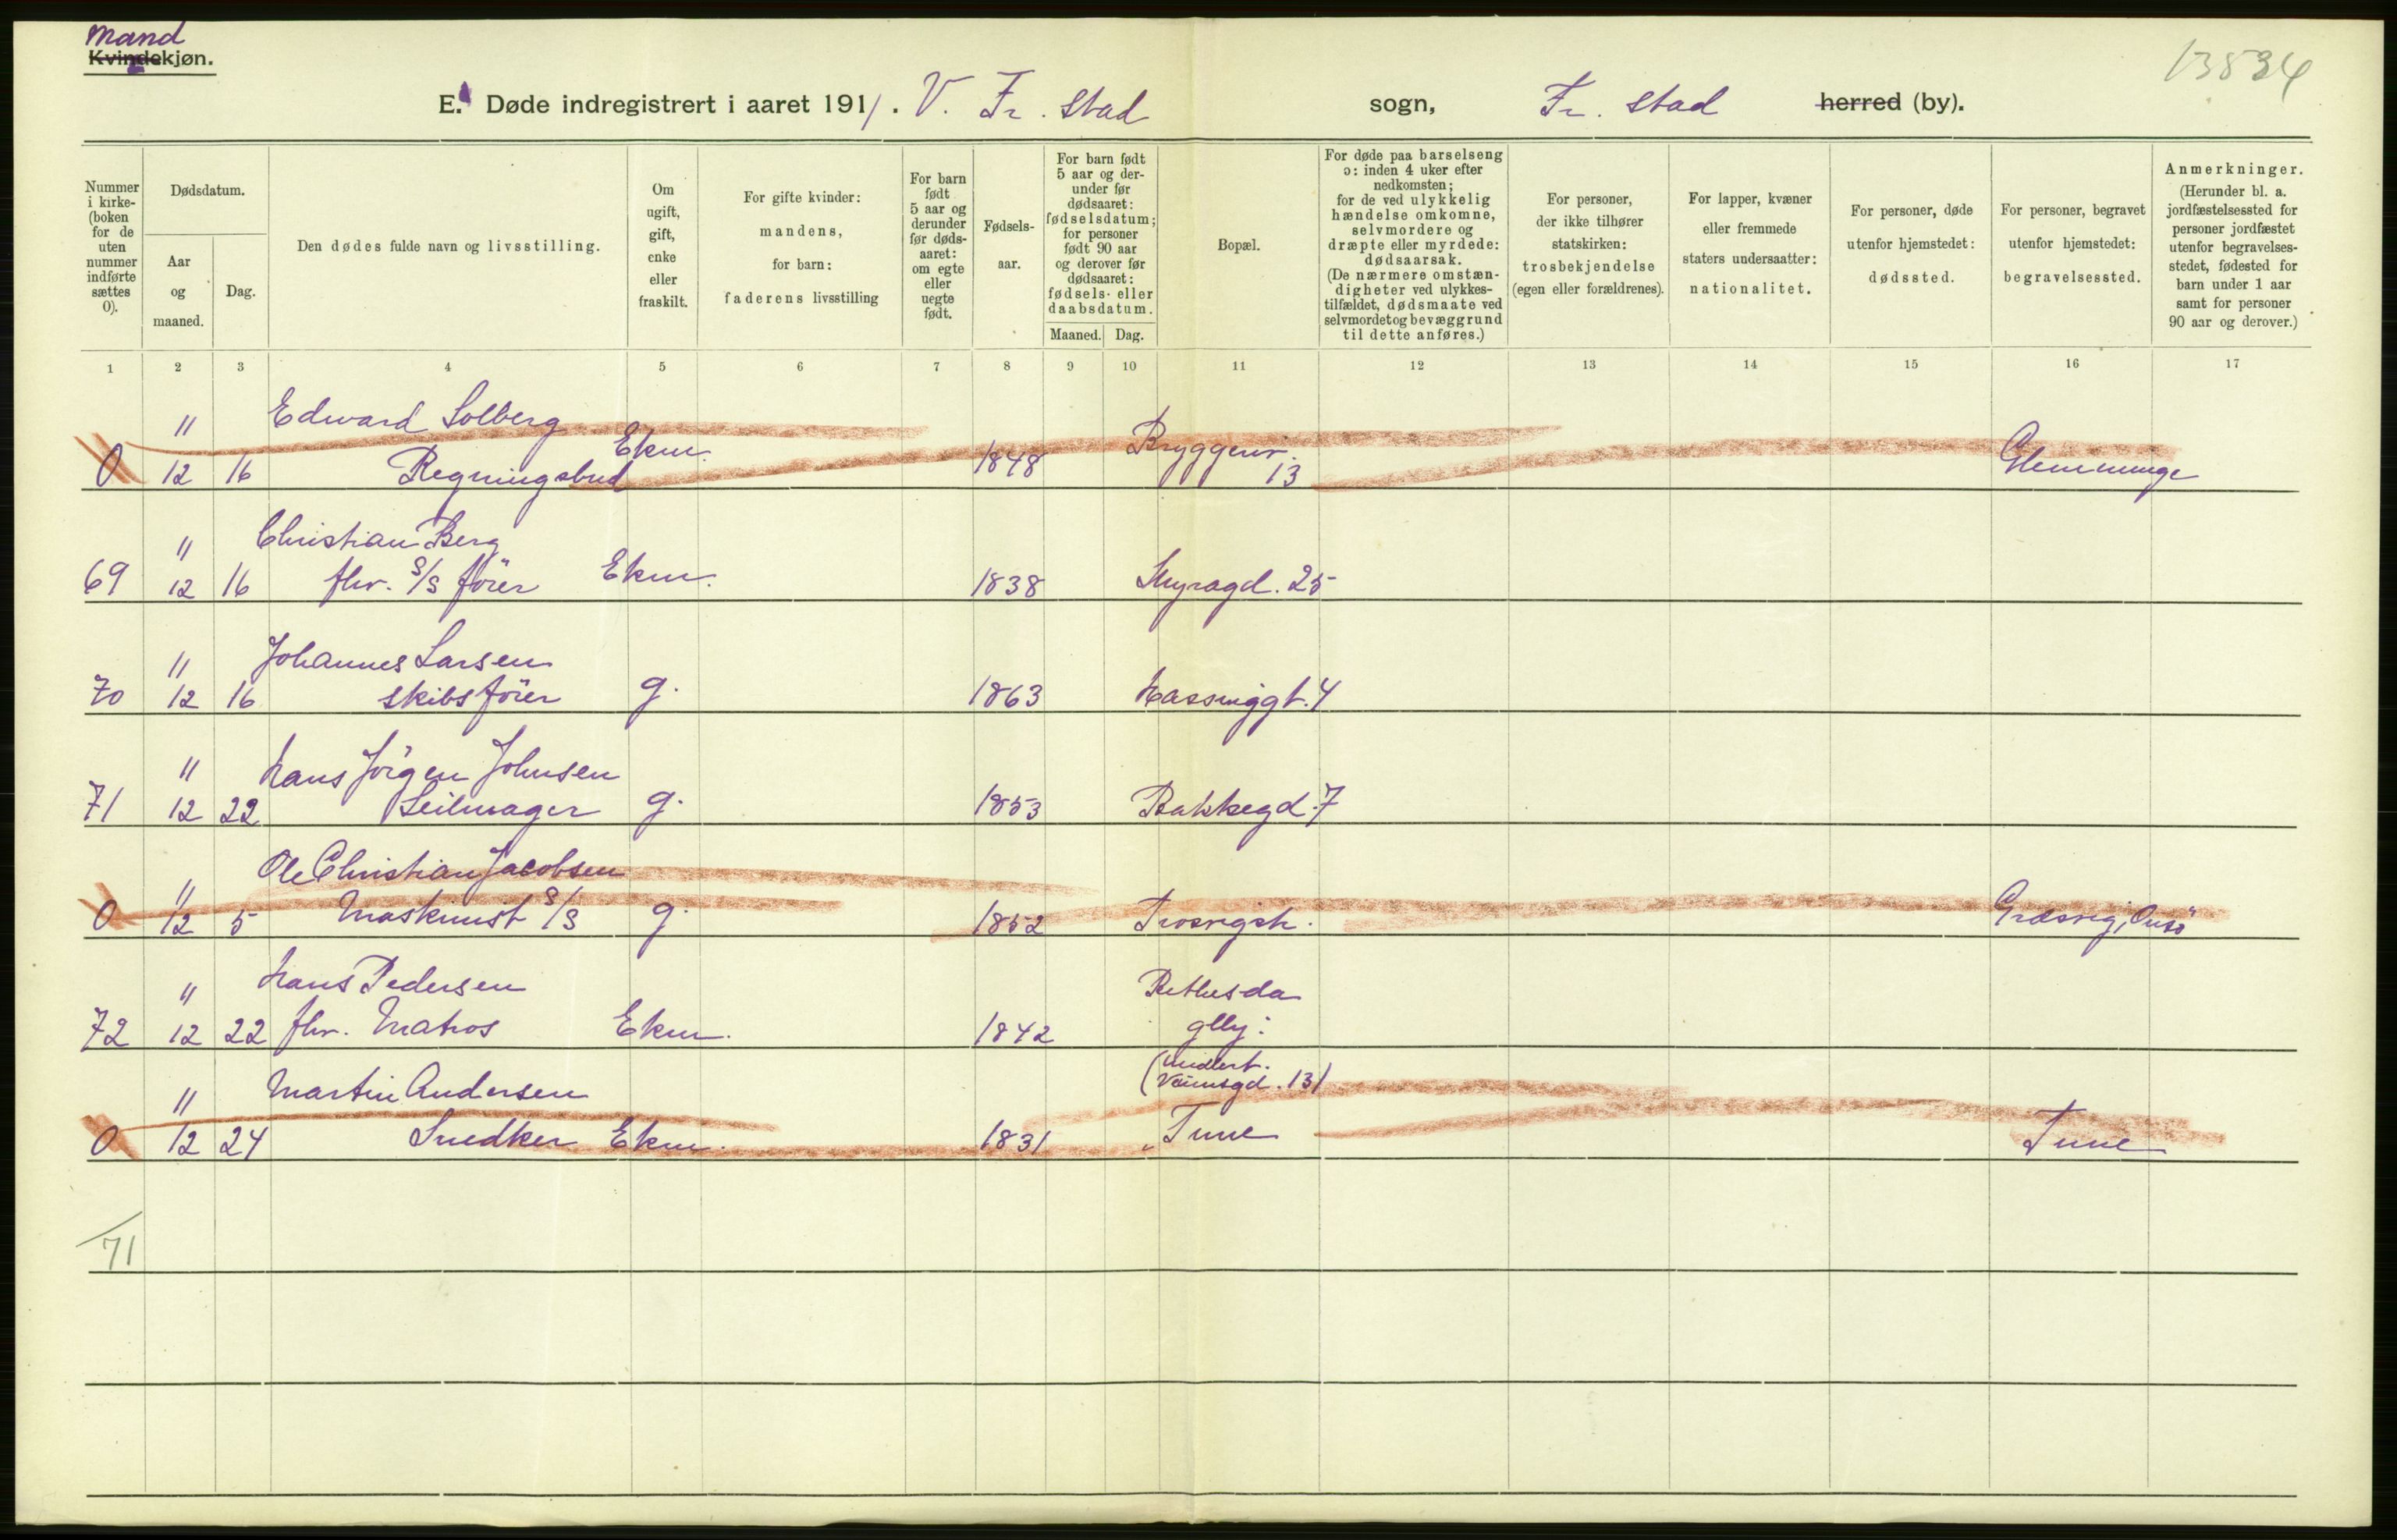 Mand
Kvindekjøn.
13834
E. Døde indregistrert i aaret 1911. V. Fr. stad sogn, Fr. stad herred (by).
Nummer i kirke-(boken for de uten nummer indførte sættes 0).
Dødsdatum.
Aar og maaned.
Dag.
Den dødes fulde navn og livsstilling.
Om ugift, gift, enke eller fraskilt.
For gifte kvinder: mandens, for barn: faderens livsstilling
For barn født 5 aar og derunder før døds-aaret: om egte eller uegte født.
Fødsels-aar.
For barn født 5 aar og der-under før dødsaaret: fødselsdatum; for personer født 90 aar og derover før dødsaaret: fødsels- eller daabsdatum.
Maaned. Dag.
Bopæl.
For døde paa barselseng ɔ: inden 4 uker efter nedkomsten; for de ved ulykkelig hændelse omkomne, selvmordere og dræpte eller myrdede: dødsaarsak. (De nærmere omstæn-digheter ved ulykkes-tilfældet, dødsmaate ved selvmordet og bevæggrund til dette anføres.)
For personer, der ikke tilhører statskirken: trosbekjendelse (egen eller forældrenes).
For lapper, kvæner eller fremmede staters undersaatter: nationalitet.
For personer, døde utenfor hjemstedet: dødssted.
For personer, begravet utenfor hjemstedet: begravelsessted.
Anmerkninger. (Herunder bl. a. jordfæstelsessted for personer jordfæstet utenfor begravelses-stedet, fødested for barn under 1 aar samt for personer 90 aar og derover.)
1 2 3 4 5 6 7 8 9 10 11 12 13 14 15 16 17
11 Edward Solberg
0 12 16 Regningsbud Ekm. 1848 Bryggeriv. 13 Glemminge
11 Christian Berg
69 12 16 fhv. S/S förer Ekm. 1838 Myragd. 25
11 Johannes Larsen
70 12 16 skibsförer g. 1863 Hassinggt. 4
11 Hans Jörgen Johnsen
71 12 22 Seilmager g. 1853 Bakkegd. 7
11 Ole Christian Jacobsen
0 12 5 Maskinist S/S g. 1852 Trosvigst. Græsvig, Onsö
11 Hans Pedersen Bethesda
72 12 22 fhv. Matros Ekm. 1842 glhj:
11 Martin Andersen (Midlert. 13)
0 12 24 Snedker Ekm. 1831 Tune Tune
71